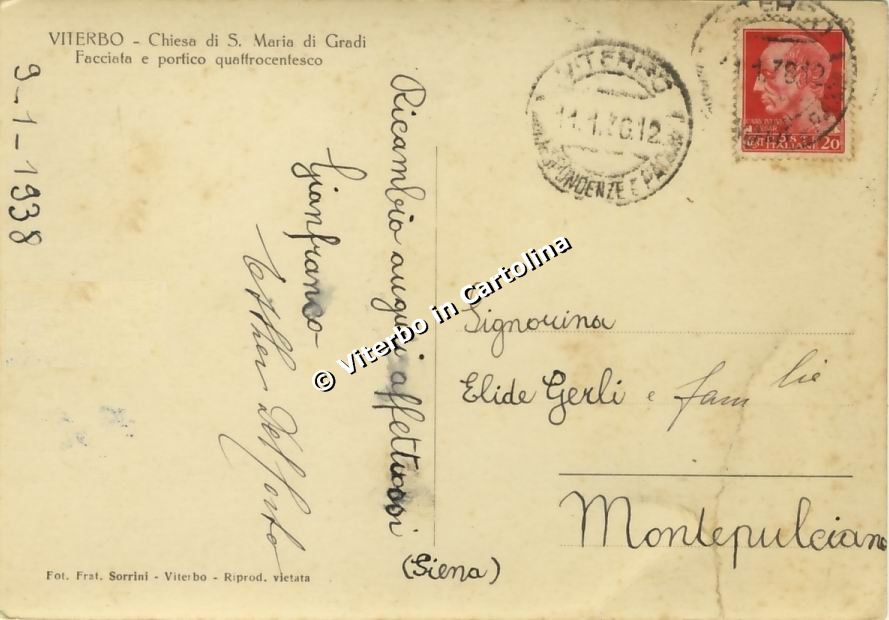 VITERBO - Chiesa di S. Maria di Gradi
Facciata e portico quattrocentesco
9-1-1938
Ricambio auguri affettuosi
Gianfranco
VITERBO
11.1.36.12
20
Signorina
Elide Gerli e fam lie
Montepulciano
(Siena)
© Viterbo in Cartolina
Fot. Frat. Sorrini - Viterbo - Riprod. vietata